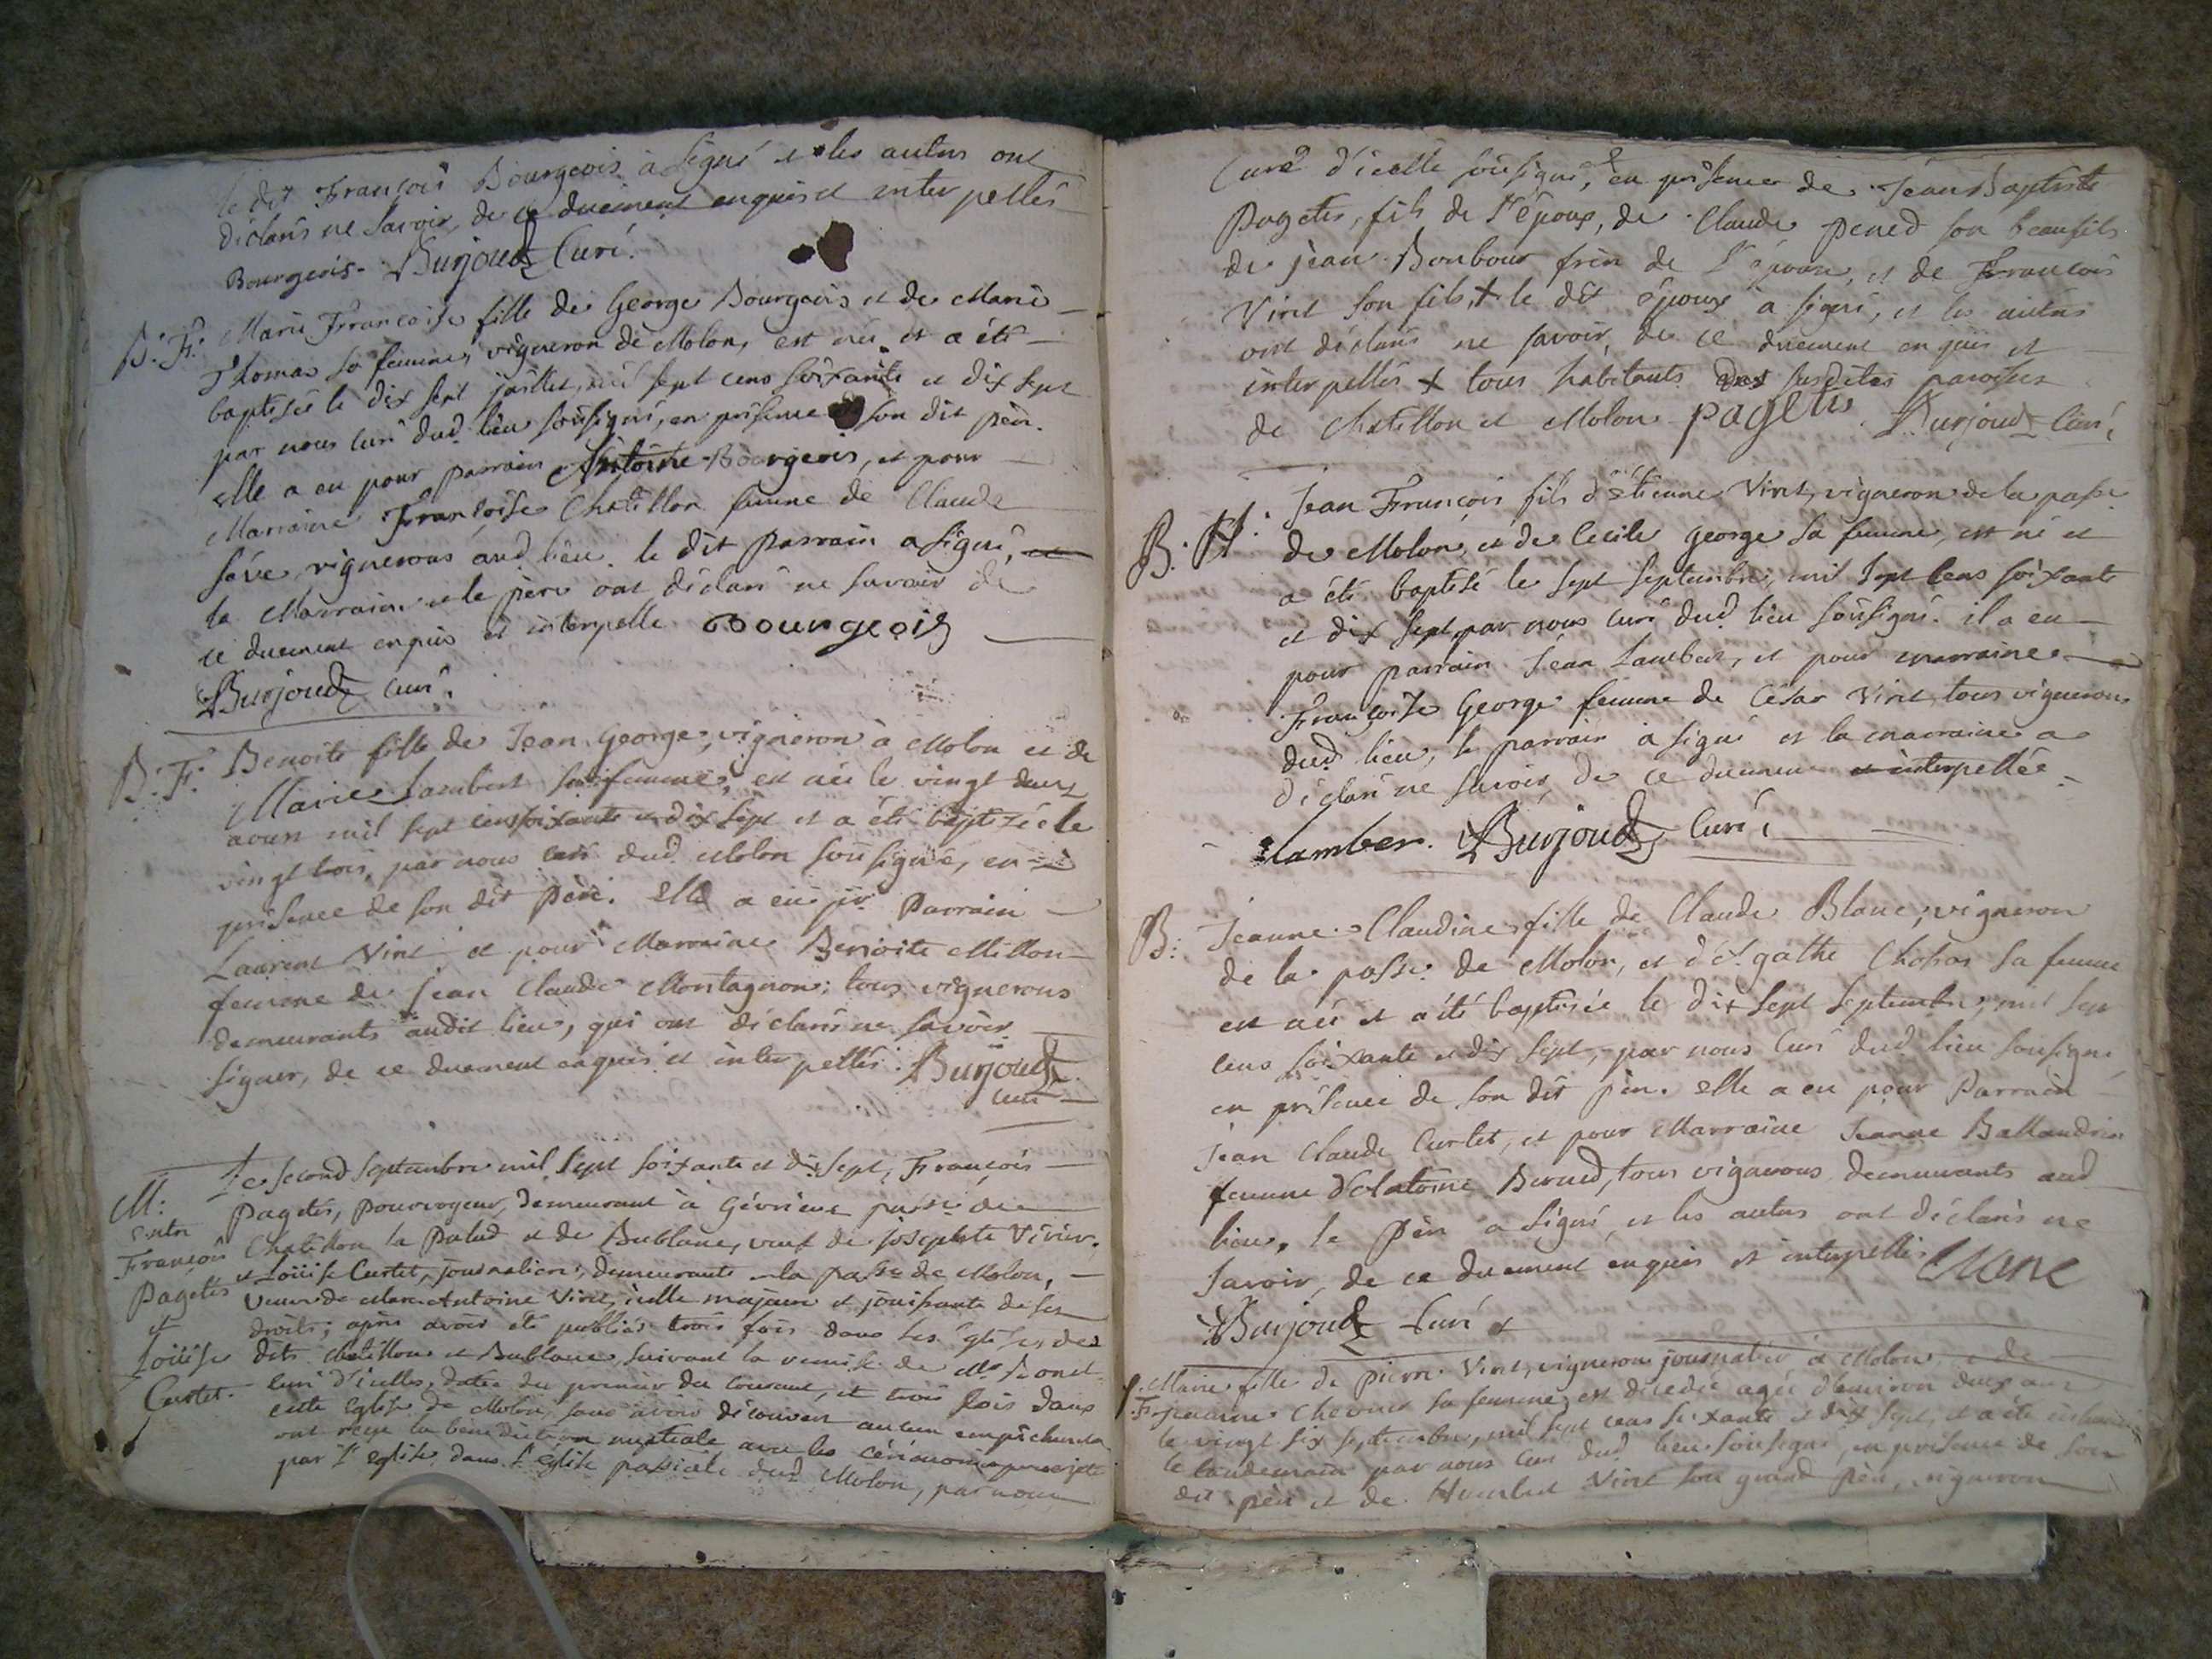 le dit François Bourgeois à signé et les autres ont
déclarés ne savoir, de ce duement enquis et interpellés
Bourgeois. Burjoud Curé.
B: F: Marie Françoise fille de George Bourgeois et de Marie
Thomas sa femme, vigneron de Molon, est née et a été
baptisée le dix sept juillet, mil sept cens soixante et dix sept
par nous curé dud. lieu soûsigné, en présence de son dit père.
elle a eu pour parrain Antoine Bourgeois, et pour
Marraine Françoise Chatillon femme de Claude
séve, vignerons aud. lieu. le dit parrain a signé,
la Marraine et le père ont déclaré ne savoir de
ce duement enquis et interpellé Bourgeois
Burjoud curé.
B: F: Benoite fille de Jean George, vigneron à Molon et de
Marie Lambert sa femme, est née le vingt deux
aoust mil sept cens soixante et dix sept et a été baptisée le
vingt trois, par nous curé dud. Molon soûsigné, en
présence de son dit père. elle a eu pr. Parrain
Laurent Viret et pour Marraine Benoite Millon
femme de Jean Claude Montagnon; tous vignerons
demeurants audit lieu, qui ont déclaré ne savoir
signer, de ce duement enquis et interpellés. Burjoud
curé
M: Le second septembre mil sept soixante et dix sept, François
entre pagetés, pourvoyeur, demeurant à Gévrieux parsse. de
François Chatillon la Palud et de Bublane, veuf de josephte Vivier.
Pagetés et Loüise Curtet, journaliere, demeurante en la passe. de Molon,
et veuve de Marc Antoine Viret, icelle majeure et jouissante de ses
Loüise droits; après avoir été publiés trois fois dans les églises des
Curtet. dits Chatillon et Bublane, suivant la remise de Mr
curé d'icelles, datée du premier du courant, et trois fois dans
cette Eglise de Molon, sans avoir découvert aucun empêchement
ont reçu la bénédiction nuptiale avec les cérémonies prescriptes
par l'eglise, dans l'église paroissiale dud. Molon, par nous
Curé d'icelle soûsigné, en présence de Jean Baptiste
Pagetés, fils de l'époux, de Claude pened son beaufils
de jean Bonbour frère de l'épouse, et de François
Viret son fils, + le dit époux a signé, et les autres
ont déclarés ne savoir, de ce duement enquis et
interpellés + tous habitants des susdites paroisses
de Chatillon et Molon pagetés. Burjoud Curé,
B: H: Jean François fils d'étienne Viret, vigneron de la passe.
de Molon, et de Cecile George sa femme, est né et
a été baptisé le sept septembre, mil sept cens soixante
et dix sept, par nous curé dud. lieu soûsigné. il a eu
pour parrain Jean Lambert, et pour marraine
Françoise George femme de César Viret, tous vignerons
dud. lieu, le parrain à signé et la marraine a
déclaré ne savoir, de ce duement et interpellée
lamber. Burjoud Curé,
B: Jeanne Claudine fille de Claude Blanc, vigneron
de la passe. de Molon, et d'Agathe Chossas sa femme
est née et a été baptisée le dix sept septembre, mil sept
cens soixante et dix sept, par nous Curé dud. lieu sousigné
en présence de son dit père. elle a eu pour Parrain
Jean Claude Curtet, et pour Marraine Jeanne Ballandrin
femme d'Antoine Berned, tous vignerons demeurants aud.
lieu. le père a signé, et les autres ont déclarés ne
savoir, de ce duement enquis et interpellés. Blanc
Burjoud Curé
F: Marie fille de Pierre Viret, vigneron journalier à Molon, et de
jeanne sa femme, est decedée agée d'environ deux ans
le vingt six septembre, mil sept cens soixante et dix sept, et a été inhumée
le landemain par nous curé dud. lieu soûsigné, en présence de son
dit père et de Humbert Viret son grand père, vigneron